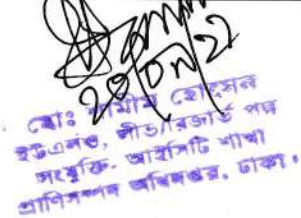 ২০/০৭/২১
মোঃ শামীম হোসেন
ইউএলও, লীভ/রিজার্ভ পদ
সংযুক্তি- আইসিটি শাখা
প্রাণিসম্পদ অধিদপ্তর, ঢাকা।